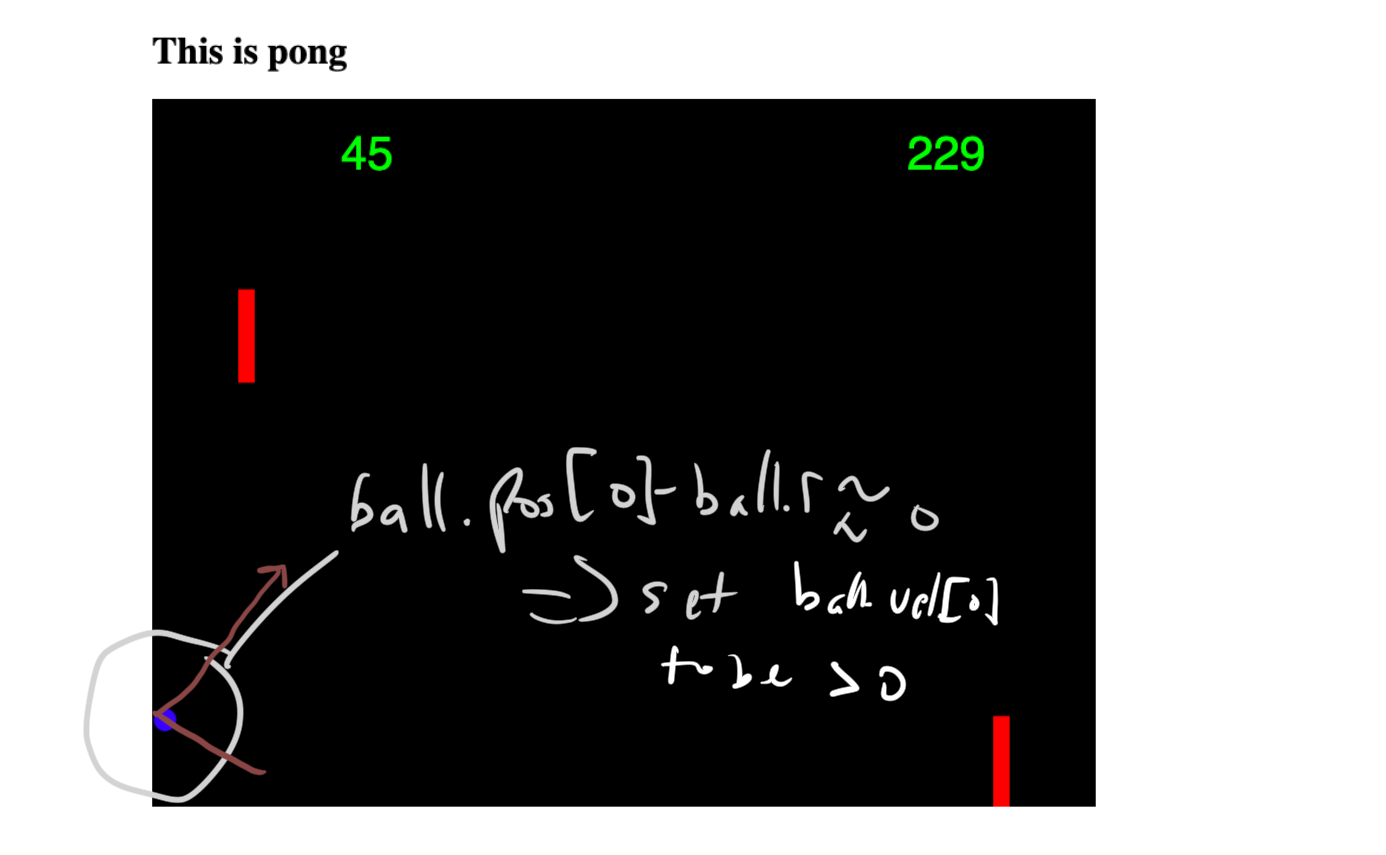 This is pong
45 229
ball.pos[0]-ball.r ≈ 0
=> set ball vel[0]
to be > 0